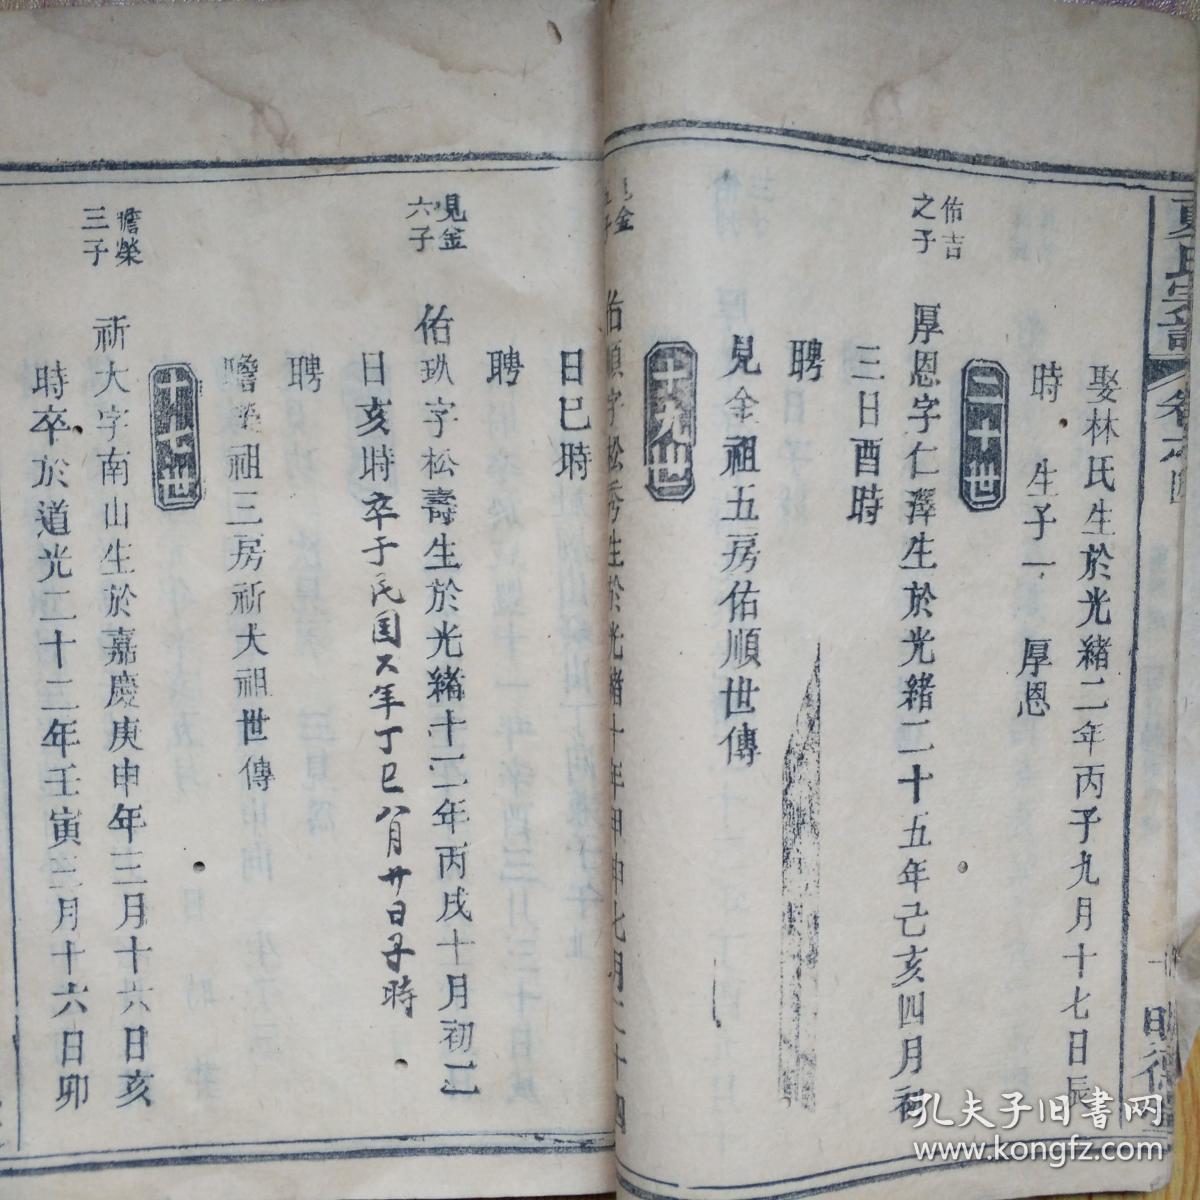 氏宗譜 卷之四
明德堂
娶林氏生於光緒二年丙子九月十七日辰
時 生子一 厚恩
二十世
佑吉
之子
厚恩字仁澤生於光緒二十五年己亥四月初
三日酉時
聘
見金祖五房佑順世傳
十九世
見金
五子
佑順字松秀生於光緒十年甲申七月二十四
日巳時
聘
見金
六子
佑玖字松壽生於光緒十二年丙戌十月初二
日亥時卒于民国六年丁巳八月廿日子時
聘
瞻榮祖三房祈大祖世傳
十七世
瞻榮
三子
祈大字南山生於嘉慶庚申年三月十六日亥
時卒於道光二十二年壬寅三月十六日卯
孔夫子旧书网
www.kongfz.com